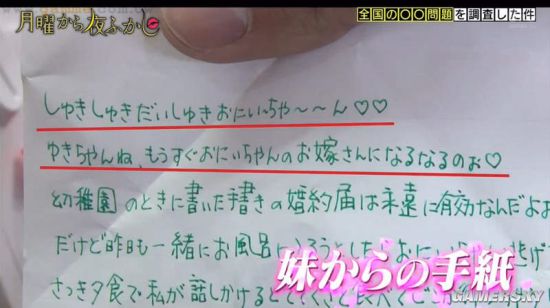 月曜から夜ふかし
全国の〇〇問題を調査した件
しゅきしゅきだいしゅきおにいちゃ～～ん♡♡
ゆきちゃんね、もうすぐおにいちゃんのお嫁さんになるなるのぉ♡
幼稚園のときに書いた手書きの婚約届は永遠に有効なんだよぉ
だけど昨日も一緒にお風呂に
さっき夕食で私が話しかけると
妹からの手紙
GAMERSKY